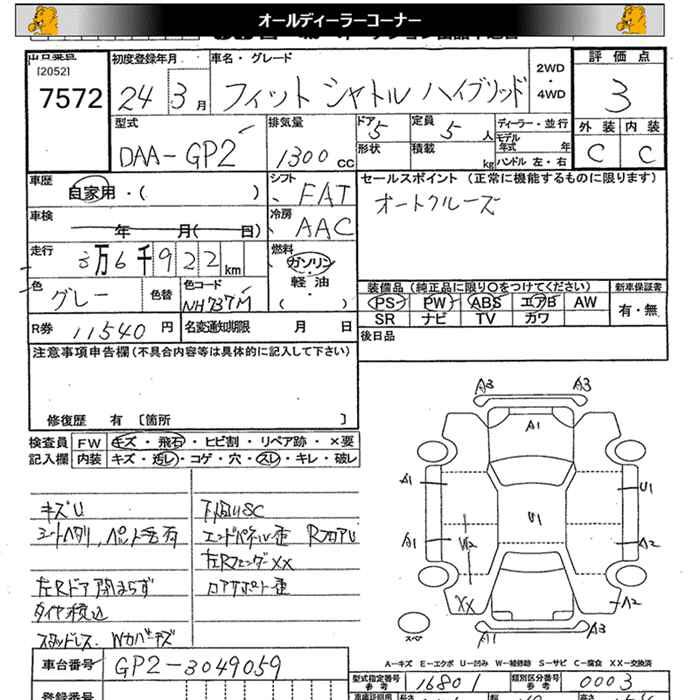 オールディーラーコーナー
出品番号
[2052]
7572
初度登録年月
24 3月
車名・グレード
フィットシャトルハイブリッド
2WD・4WD
評価点
3
外装 内装
C C
型式
DAA-GP2
排気量
1300 cc
ドア 5
定員 5 人
ディーラー・並行
モデル年式 年
形状
積載 kg
ハンドル 左・右
車歴
自家用・( )
シフト FAT
セールスポイント (正常に機能するものに限ります)
オートクルーズ
車検 年 月( 日)
冷房 AAC
走行 3万6千922km
燃料
ガソリン
・
軽油
( )
色 グレー
色替
色コード NH737M
装備品(純正品に限り○をつけてください)
新車保証書
PS PW ABS エアB AW
有・無
SR ナビ TV カワ
R券 11540 円
名変通知期限 月 日
後日品
注意事項申告欄(不具合内容等は具体的に記入して下さい)
修復歴 有 〔箇所 〕
検査員 FW キズ・飛石・ヒビ割・リペア跡・×要
記入欄 内装 キズ・汚レ・コゲ・穴・スレ・キレ・破レ
キズU
シートヘタリ、ペット毛有
左Rドア閉まらず
タイヤ積込
スタッドレス、Wカバーキズ
下廻りSC
エンドパネル歪 RフロアU
左RフェンダーXX
コアサポート歪
A3 A3
A1
A1 U1
U1
A1 W2 A2
XX A2
スペア
A1 A3
A-キズ E-エクボ U-凹み W-補修跡 S-サビ C-腐食 XX-交換済
車台番号 GP2-3049059
型式指定番号 参考 16801
類別区分番号 参考 0003
登録番号